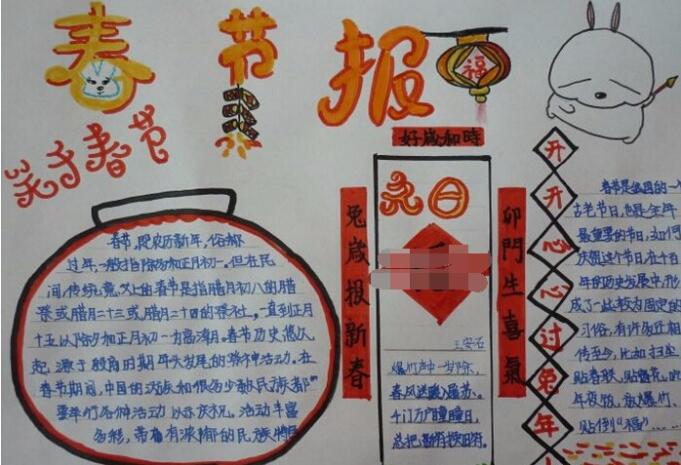 春节报
福
关于春节
好歲和時
春节,即农历新年,俗称
过年,一般指除夕和正月初一。但在民
间传统意义上的春节是指腊月初八的腊
祭或腊月二十三或腊月二十四的祭灶,一直到正月
十五以除夕和正月初一为高潮。春节历史悠久
起源于殷商时期年头岁尾的祭神活动。在
春节期间,中国的汉族和很多少数民族都
要举行各种活动以示庆祝。活动丰富
多彩,带有浓郁的民族特色
兔歲报新春
元日
王安石
爆竹声中一岁除,
春风送暖入屠苏。
千门万户曈曈日,
总把新桃换旧符。
卯門生喜氣
开开心心过兔年
春节是我国的一
古老节日,也是全年
最重要的节日,如何
庆祝这个节日,在千百
年的历史发展中,形
成了一些较为固定的
习俗,有许多还相
传至今,比如扫尘
贴春联,贴窗花,吃
年夜饭,放爆竹,
贴倒“福”……